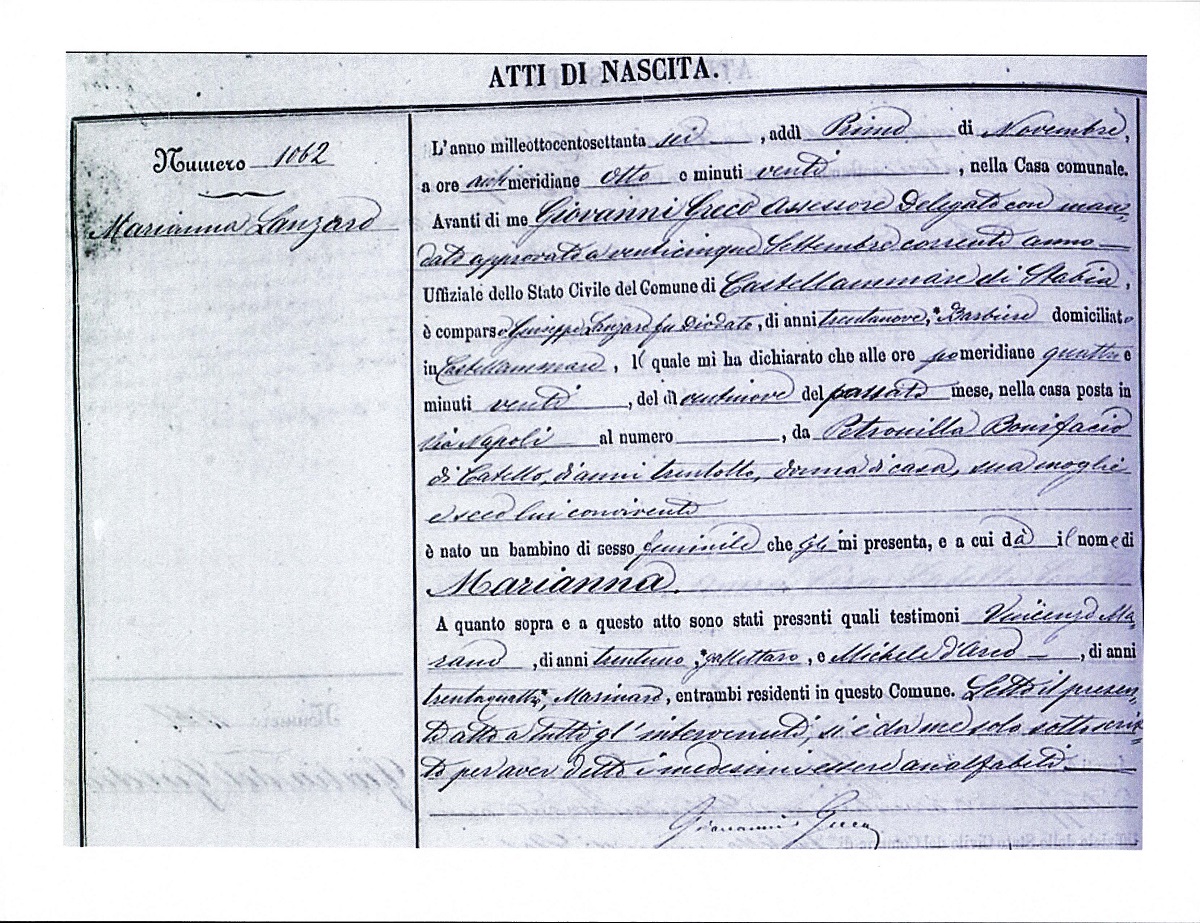 ATTI DI NASCITA.
Numero 1062
Marianna Lanzaro
L'anno milleottocentosettanta sei, addì Primo di Novembre,
a ore antimeridiane otto e minuti venti, nella Casa comunale.
Avanti di me Giovanni Greco Assessore Delegato con man-
dato approvato a venticinque Settembre corrente anno
Uffiziale dello Stato Civile del Comune di Castellammare di Stabia,
è comparso Giuseppe Lanzaro fu Diodato, di anni trentanove, Barbiere domiciliato
in Castellammare, il quale mi ha dichiarato che alle ore pomeridiane quattro e
minuti venti, del dì ventinove del passato mese, nella casa posta in
Via Napoli al numero , da Petronilla Bonifacio
di Catello, di anni trentotto, donna di casa, sua moglie
e seco lui convivente
è nato un bambino di sesso feminile che gli mi presenta, e a cui dà il nome di
Marianna.
A quanto sopra e a questo atto sono stati presenti quali testimoni Vincenzo Ma-
rano, di anni trentuno, e Michele d'Arco, di anni
trentaquattro, Marinaro, entrambi residenti in questo Comune. Letto il presen-
te atto a tutti gl'intervenuti, si è da me solo sottoscrit-
to per aver detto i medesimi essere analfabeti.
Giovanni Greco